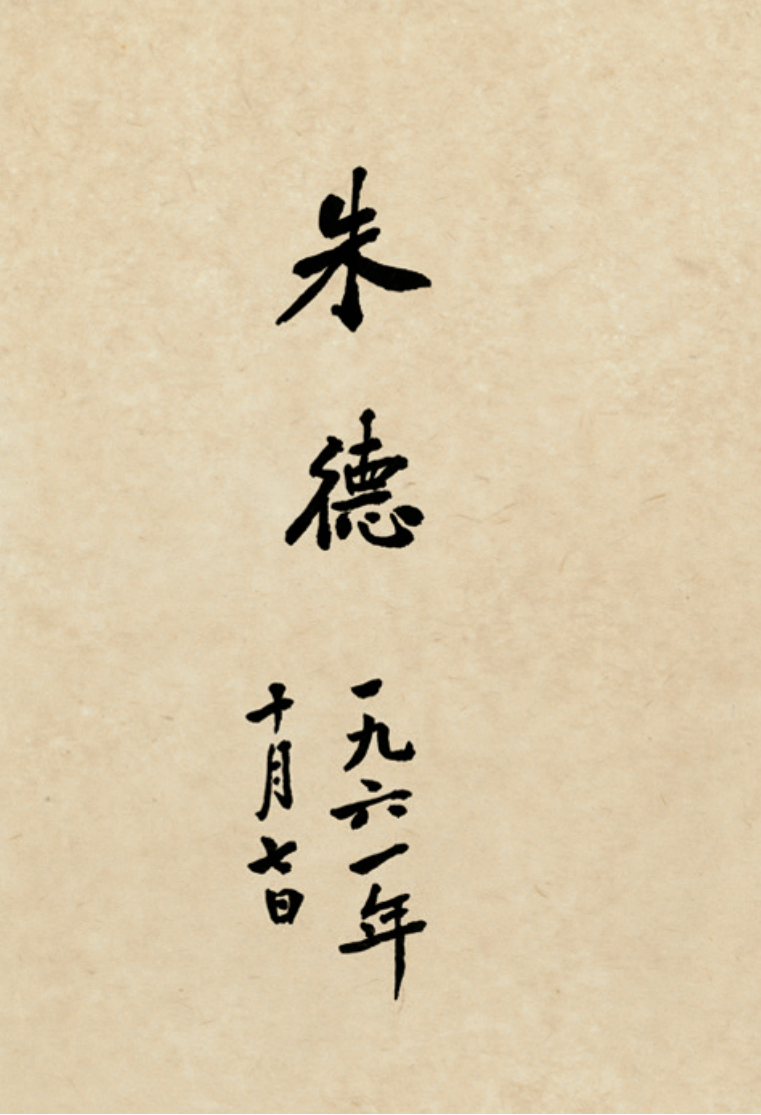 朱德
一九六一年
十月七日